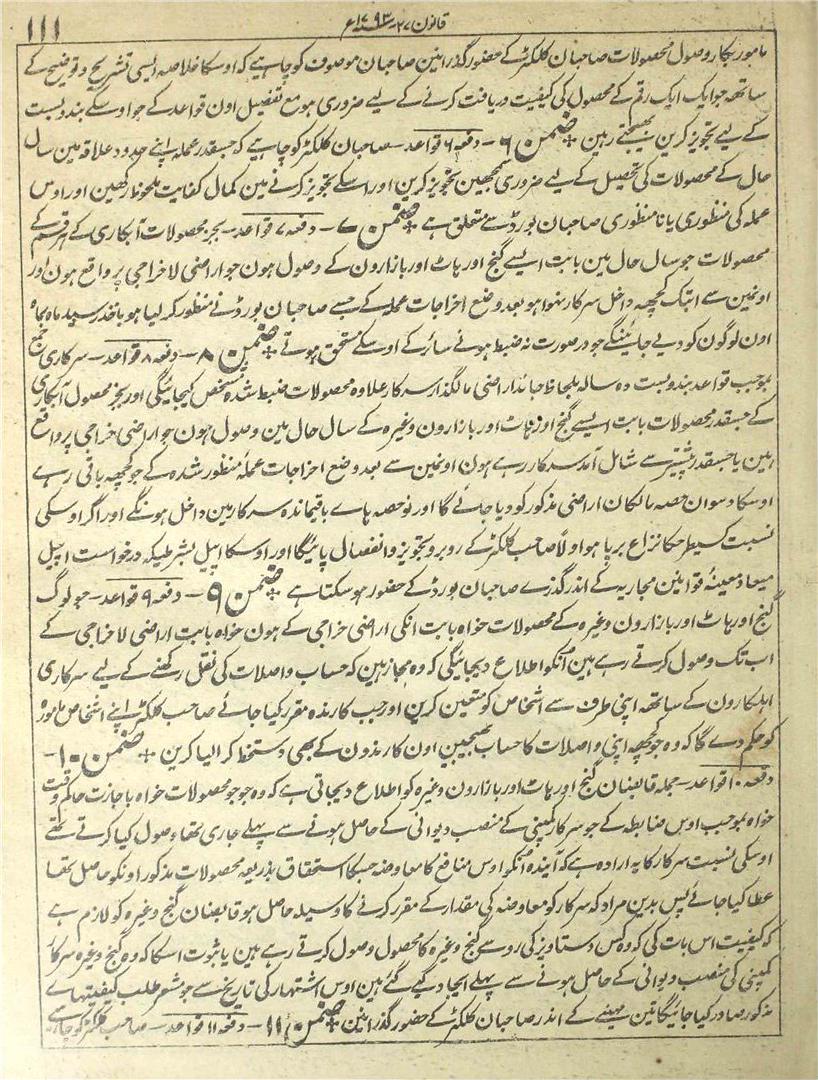 قانون ۲۷ ۱۷۹۳ع
۱۱۱
مامور بکار وصول محصولات صاحبان کلکٹر کے حضور گذرانین صاحبان موصوف کو چاہیے کہ اوسکا خلاصہ ایسی تشریح و توضیح کے
ساتھہ جو ایک ایک رقم کے محصول کی کیفیت دریافت کرنے کے لیے ضروری ہو مع تفصیل اون قواعد کے جو اوسکے بندوبست
کے لیے تجویز کرین بھیجتے رہین * ضمن ۶ - دفعہ ۶ قواعد - صاحبان کلکٹر کو چاہیے کہ جسقدر عملہ اپنے حدود علاقہ مین سال
حال کے محصولات کی تحصیل کے لیے ضروری سمجھین تجویز کرین اور اسکے تجویز کرنے مین کمال کفایت ملحوظ رکھین اور اوس
عملہ کی منظوری یا نامنظوری صاحبان بورڈ سے متعلق ہے * ضمن ۷ - دفعہ ۷ قواعد - بجز محصولات آبکاری کے ہر قسم کے
محصولات جو سال حال مین بابت ایسے گنج اور ہاٹ اور بازارون کے وصول ہون جو اراضی لاخراجی پر واقع ہون اور
اونمین سے ابتک کچھہ داخل سرکار نہوا ہو بعد وضع اخراجات عملہ کے جسے صاحبان بورڈ نے منظور کر لیا ہو باخذ رسید ماہ بماہ
اون لوگون کو دیے جائینگے جو در صورت نہ ضبط ہونے سائر کے اوسکے مستحق ہوتے * ضمن ۸ - دفعہ ۸ قواعد - سرکاری جمع
بموجب قواعد بندوبست دہ سالہ بلحاظ جائداد اراضی مالگذار سرکار علاوہ محصولات ضبط شدہ مشخص کیجائیگی اور بجز محصول آبکاری
کے جسقدر محصولات بابت ایسے گنج اور ہاٹ اور بازارون وغیرہ کے سال حال مین وصول ہون جو اراضی خراجی پر واقع
ہین یا جسقدر پیشتر سے شامل آمد سرکار رہے ہون اونمین سے بعد وضع اخراجات عملہ منظور شدہ کے جو کچھہ باقی رہے
اوسکا دسوان حصہ مالکان اراضی مذکور کو دیا جائے گا اور نو حصہ ہاے باقیماندہ سرکار مین داخل ہونگے اور اگر اوسکی
نسبت کسیطرحکا نزاع برپا ہو اولاً صاحب کلکٹر کے روبرو تجویز و انفصال پائیگا اور اوسکا اپیل بشرطیکہ درخواست اپیل
میعاد معینۂ قوانین مجاریہ کے اندر گذرے صاحبان بورڈ کے حضور ہو سکتا ہے * ضمن ۹ - دفعہ ۹ قواعد - جو لوگ
گنج اور ہاٹ اور بازارون وغیرہ کے محصولات خواہ بابت انکی اراضی خراجی کے ہون خواہ بابت اراضی لاخراجی کے
اب تک وصول کرتے رہے ہین اُنکو اطلاع دیجائیگی کہ وہ مجاز ہین کہ حساب واصلات کی نقل رکھنے کے لیے سرکاری
اہلکارون کے ساتھہ اپنی طرف سے اشخاص کو متعین کرین اور جب کارندہ مقرر کیا جائے صاحب کلکٹر اپنے اشخاص مامورہ
کو حکم دے گا کہ وہ جو کچھہ اپنی واصلات کا حساب بھیجین اون کارندون کے بھی دستخط کرا لیا کرین * ضمن ۱۰ -
دفعہ ۱۰ قواعد - جملہ قابضان گنج اور ہاٹ اور بازارون وغیرہ کو اطلاع دیجاتی ہے کہ وہ جو جو محصولات خواہ باجازت حاکم وقت
خواہ بموجب اوس ضابطہ کے جو سرکار کمپنی کے منصب دیوانی کے حاصل ہونے سے پہلے جاری تھا وصول کیا کرتے تھے
اوسکی نسبت سرکار کا یہ ارادہ ہے کہ آیندہ اُنکو اوس منافع کا معاوضہ جسکا استحقاق بذریعہ محصولات مذکور اونکو حاصل تھا
عطا کیا جائے پس بدین مراد کہ سرکار کو معاوضہ کی مقدار کے مقرر کرنے کا وسیلہ حاصل ہو قابضان گنج وغیرہ کو لازم ہے
کہ کیفیت اس بات کی کہ وہ کس دستاویز کی رو سے گنج وغیرہ کا محصول وصول کرتے رہے ہین یا ثبوت اسکا کہ وہ گنج وغیرہ سرکار
کمپنی کی منصب دیوانی کے حاصل ہونے سے پہلے ایجاد کیے گئے ہین اوس اشتہار کی تاریخ سے جو مشعر طلب کیفیتہاے
مذکور صادر کیا جائیگا تین مہینے کے اندر صاحبان کلکٹر کے حضور گذرانین * ضمن ۱۱ - دفعہ ۱۱ قواعد - صاحب کلکٹر کو چاہیے